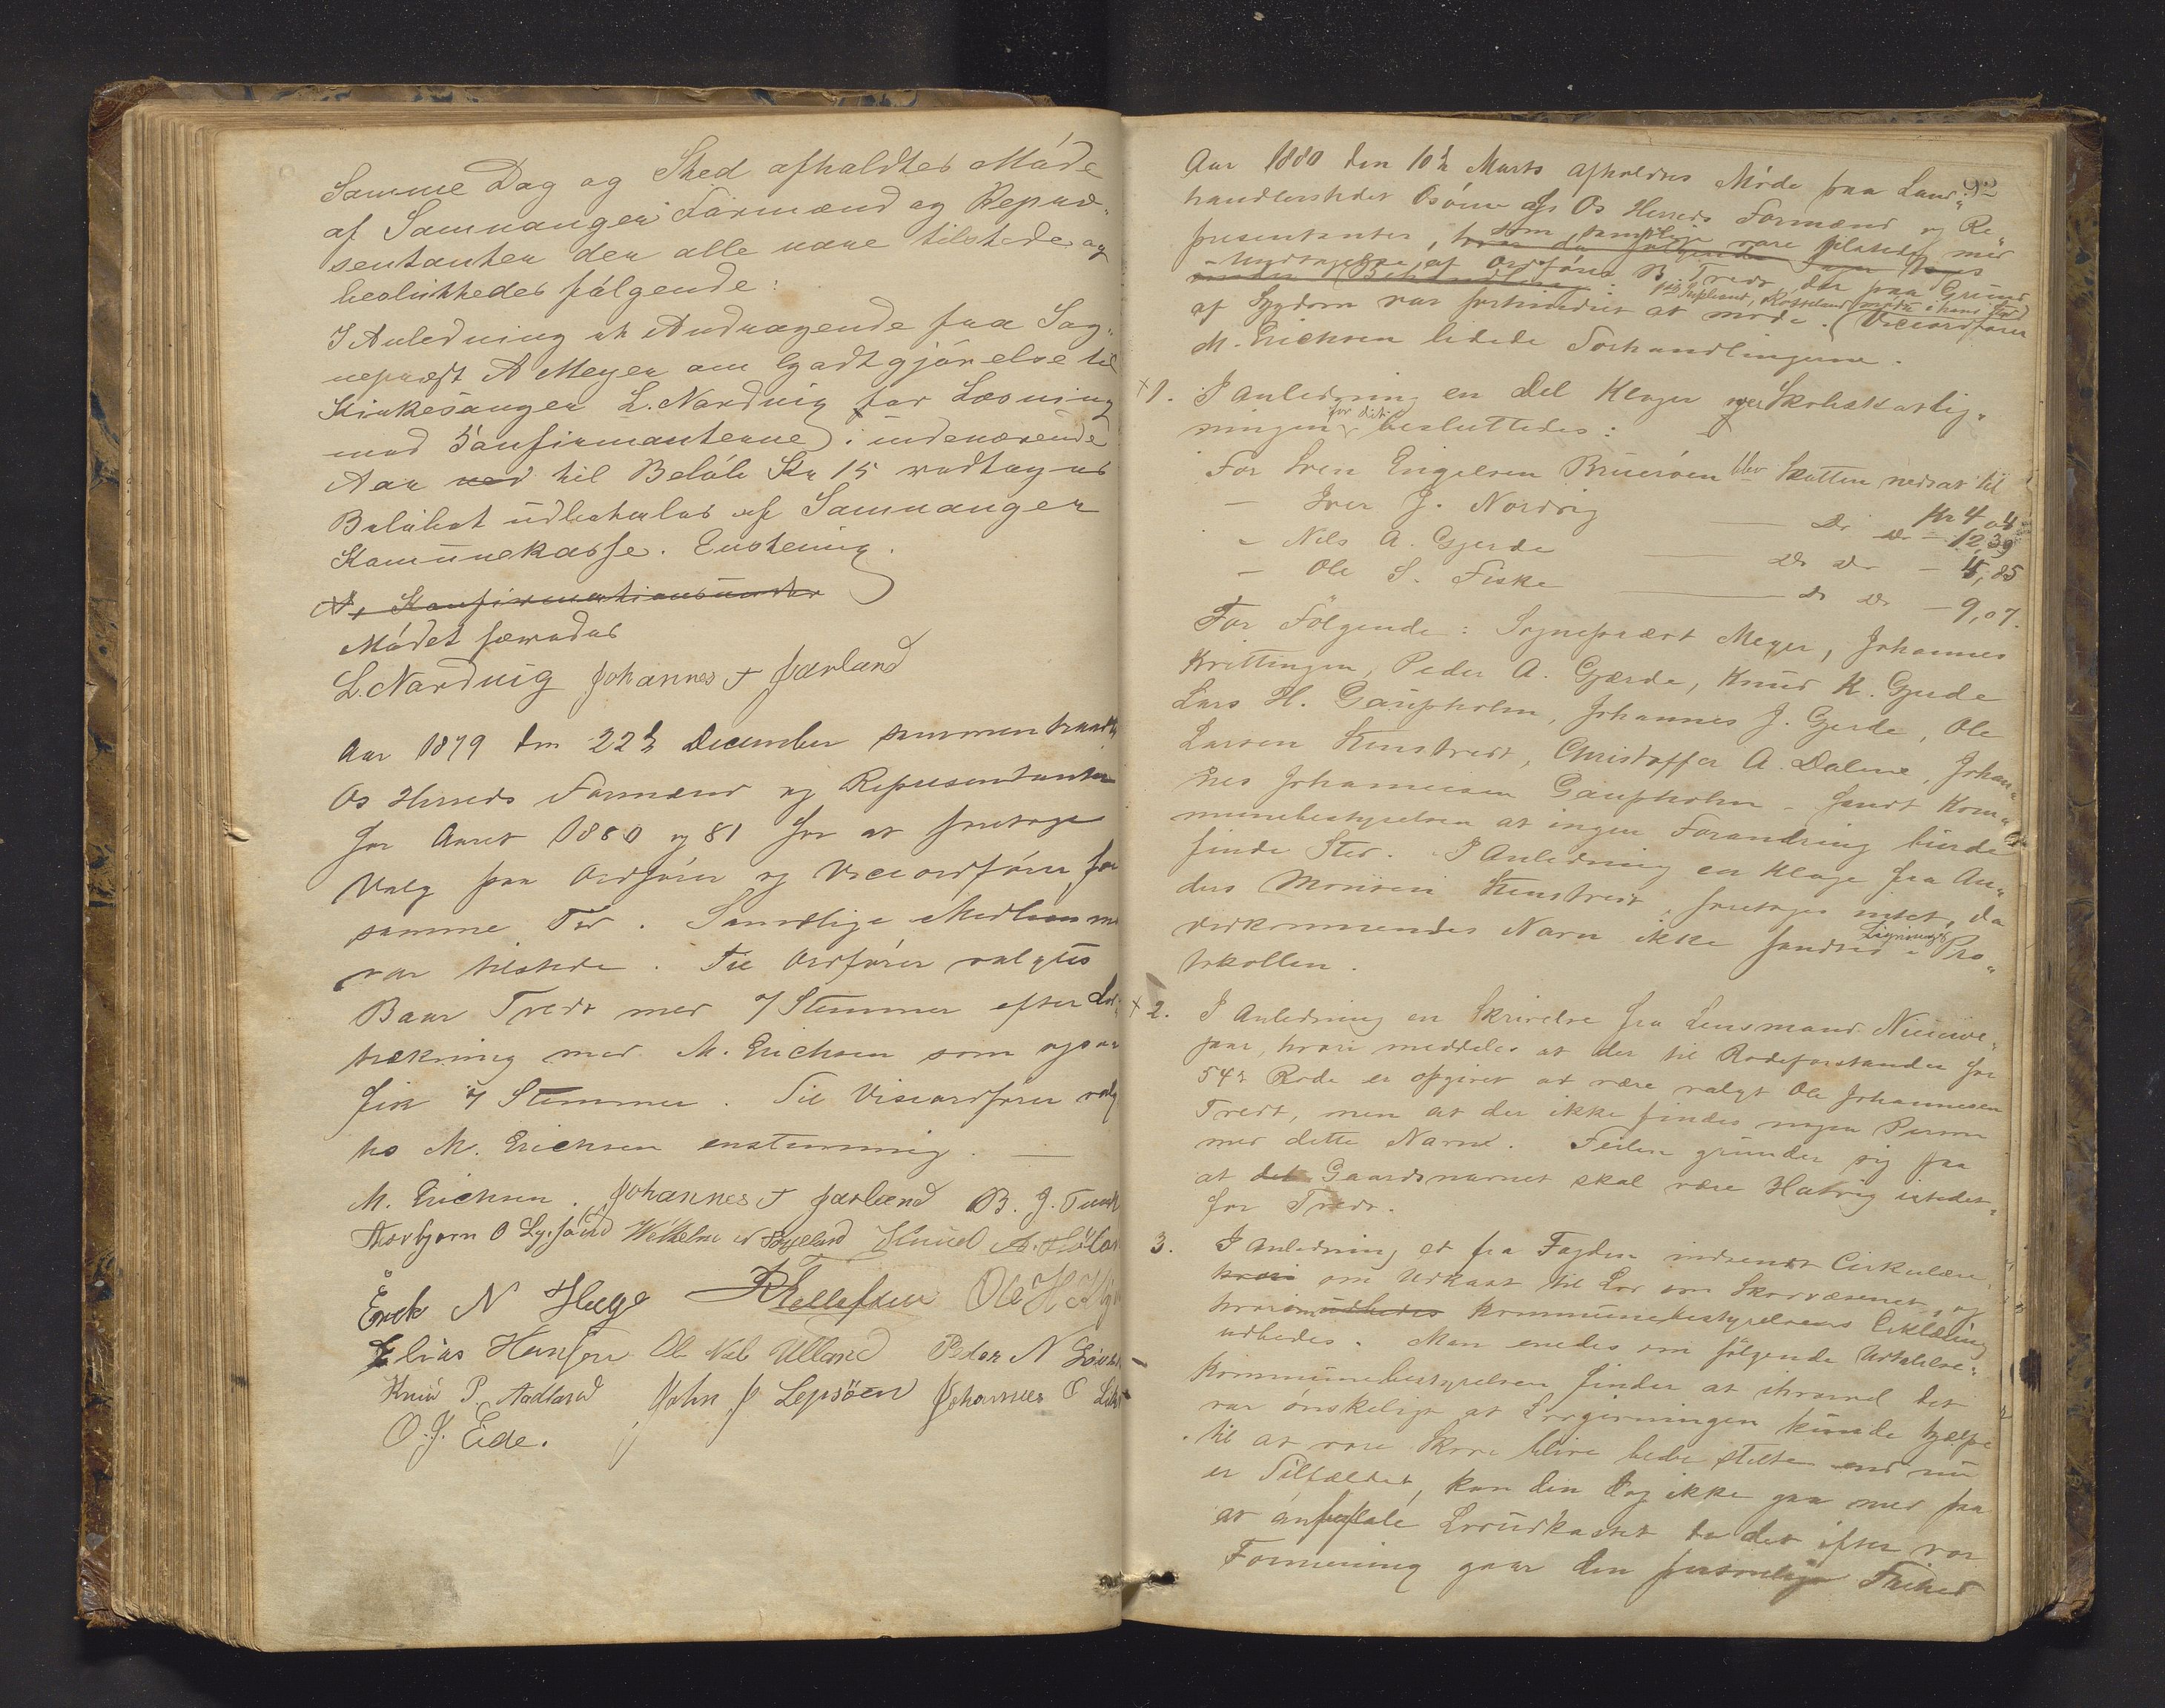 Samme Dag og Sted afholdtes Møde
af Samnanger Formænd og Repræ-
sentanter der alle vare tilstede og
besluttedes følgende:
I Anledning et Andragende fra Sog-
nepræst A Meyer om Godtgjørelse til
Kirkesanger L. Nordvig for Læsning
med Konfirmanterne i indeværende
Aar ved til Beløb Kr 15 vedtoges
Beløbet udbetales af Samnanger
Komunekasse. Enstemig.
Konfirmations
Mødet hævedes
L. Nordvig Johannes J Havland
Aar 1879 den 22de December sammentraadte
Os Herreds Formænd og Repræsentanter
for Aaret 1880 og 81 for at foretage
Valg paa Ordfører og Viceordfører for
samme Tid. Samtlige Medlemme
var tilstede. Til Ordfører valgtes
Baar Tvedt med 7 Stemmer efter Lod-
trækning med M. Erichsen som ogsaa
fik 7 Stemmer. Til Viseordfører valg
tes M. Erichsen enstemmig. —
M. Erichsen. Johannes J Havland B. J. Tvedt
Thorbjørn O Lysø Wilhelm Knud
Erik N Hauge Tellefsen Ole H
Elias Hansen Ole Nels Ulland Peder N
Knud P. Aadland John J Lepsøen Johannes O
O. J. Eide.
92
Aar 1880 den 10de Marts afholdtes Møde paa Land-
handlerstedet Osøren af Os Herreds Formænd og Re-
presentanter, som samtlige vare tilstede med
Undtagelse af Ordfører B. Tvedt, der paa Grund
1ste Supleant, Rosseland mødte i hans Sted
af Sygdom var forhindret at møde. Viceordfører
M. Erichsen ledede Forhandlingerne.
1. I Anledning en Del Klager over Skoleskatlig-
ningen for besluttedes:
For Sven Engelsen Bruerøen blev Skatten nedsat til
Kr 4,04
- Iver J. Nordvig — Do do - 12,39
- Nils A. Gjerde — Do Do - 4,85
- Ole S. Fiske — Do Do - 9,07.
For Følgende: Sognepræst Meyer, Johannes
Kvittingen, Peder A. Gjærde, Knud K. Gjerde
Lars H. Gaupholm, Johannes J. Gjerde, Ole
Larsen Tenstvedt, Christoffer A. Dalene, Johan-
nes Johannessen Gaupholm - fandt Kom-
munebestyrelsen at ingen Forandring burde
finde Sted. I Anledning en Klage fra An-
ders Monsen Stenstvedt, foretages intet, da
vedkommendes Navn ikke fandtes i Lignings Pro-
tokollen.
2. I Anledning en Skrivelse fra Lensmand Numme-
paar, hvori meddeles at der til Rodeforstander for
54de Rode er opgivet at være valgt Ole Johannesen
Tvedt, men at der ikke findes nogen Person
med dette Navn. Feilen grunder sig paa
at det Gaardsnavnet skal være Hatvig istedet-
for Tvedt.
3. I Anledning et fra Fogden indsendt Cirkulære
hvori om Udkast til Lov om Skovvæsenet, og
hvorom udbedes Kommunebestyrelsens Erklæring
udbedes. Man enedes om følgende Udtalelse:
Kommunebestyrelsen finder at ihvorvel det
var ønskeligt at Lovgivningen kunde hjælpe
til at vore Skove blive bedre stelte end nu
er Tilfældet, kan den dog ikke gaa med paa
at anbefale Lovudkastet da det efter vor
Formening gaar den personlige Frihed